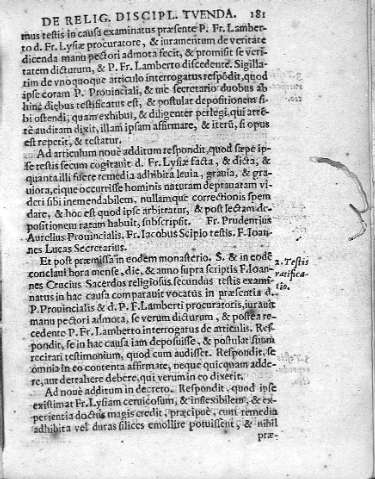 DE RELIG. DISCIPL. TVENDA. 181
mus testis in causa examinatus præsente P. Fr. Lamber-
to d. Fr. Lysiæ procuratore, & iuramentum de veritate
dicenda manu pectori admota fecit, & promisit se veri-
tatem dicturum, & P. Fr. Lamberto discedente. Sigilla-
tim de vnoquoque articulo interrogatus respõdit, quod
ipse coram P. Prouinciali, & me secretario duobus ab
hinc diebus testificatus est, & postulat depositionem si-
bi ostendi, quam exhibui, & diligenter perlegi, qui atten-
tè auditam dixit, illam ipsam affirmare, & iterũ, si opus
est repetit, & testatur.
Ad articulum nouè additum respondit, quod sæpè ip-
se testis secum cogitauit d. Fr. Lysiæ facta, & dicta, &
quanta illi fuere remedia adhibita leuia, grauia, & gra-
uiora, eique occurrisse hominis naturam deprauatam vi-
deri sibi inemendabilem, nullamque correctionis spem
dare, & hoc est quod ipse arbitratur, & post lectam de-
positionem ratam habuit, subscripsit. Fr. Prudentius
Aurelius Prouincialis. Fr. Iacobus Scipio testis. F. Ioan-
nes Lucas Secretarius.
Et post præmissa in eodem monasterio. S. & in eodẽ
conclaui hora mense, die, & anno supra scriptis F. Ioan-
nes Crucius Sacerdos religiosus secundus testis exami-
natus in hac causa comparauit vocatus in præsentia d.
P. Prouincialis & d. P. F. Lamberti procuratoris, iurauit
manu pectori admota, se verum dicturum, & postea re-
cedente P. Fr. Lamberto interrogatus de articulis. Res-
pondit, se in hac causa iam deposuisse, & postulat suum
recitari testimonium, quod cum audisset. Respondit, se
omnia in eo contenta affirmare, neque quicquam adde-
re, aut detrahere debere, qui verum in eo dixerit.
Ad nouè additum in decreto. Respondit, quod ipse
existimat Fr. Lysiam ceruicosum, & inflexibilem, & ex-
perientia doctus magis credit, præcipuè, cum remedia
adhibita vel duras silices emollire potuissent, & nihil
præ-
2. Testis
ratifica-
tio.